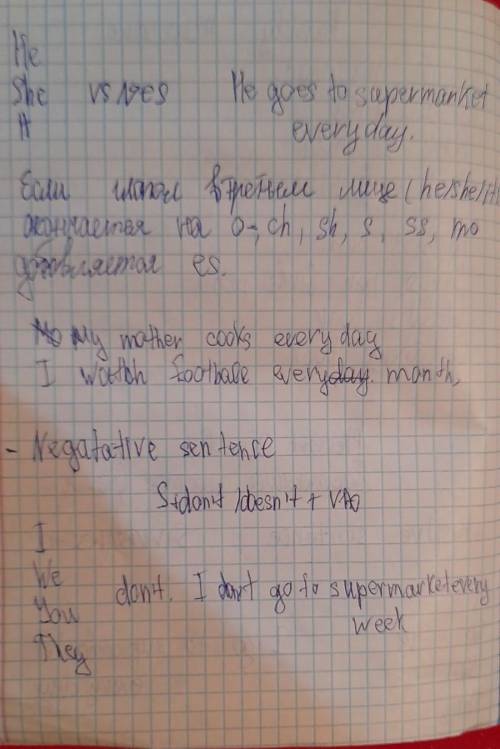 He
She vs ves He goes to supermarket
It everyday.
Если глагол в третьем лице (he/she/it
окончается на o-, ch, sh, s, ss, то
добовляется es.
My mother cooks every day
I watch every day month,
- Negatative sentence
S+don't /doesn't +
I
We
You don't. I don't go to supermarket every
They week